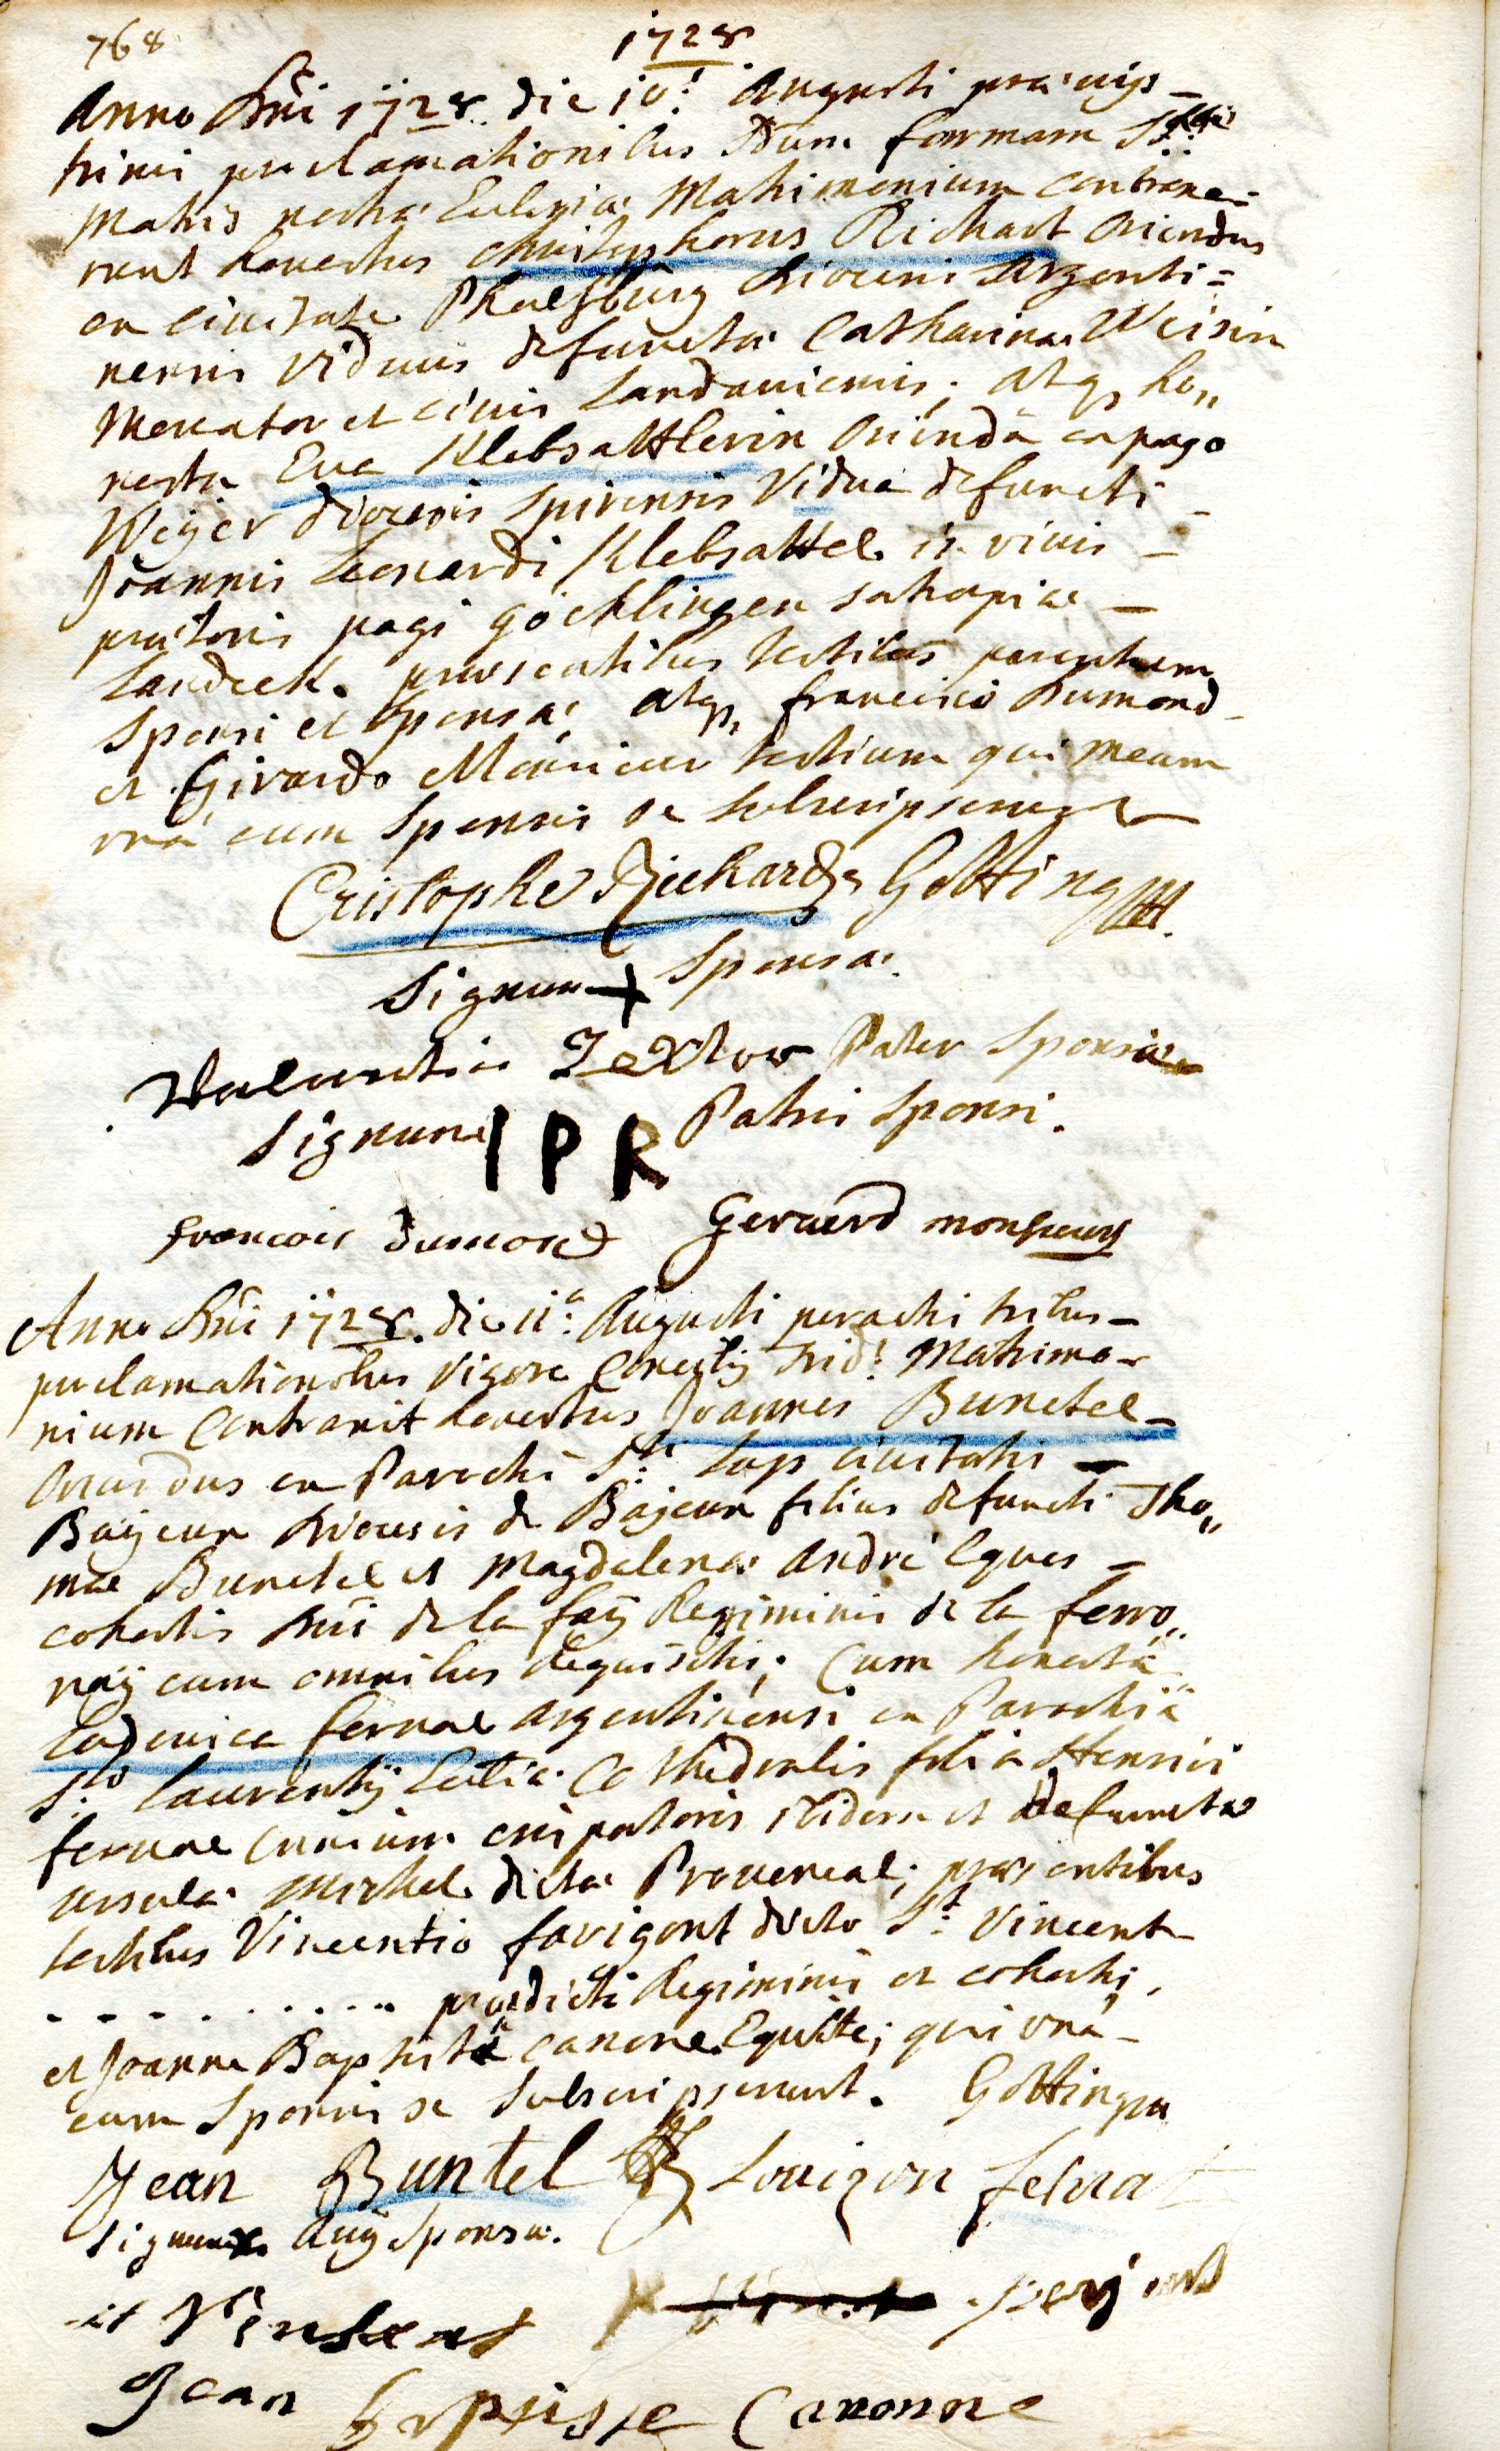 768
1728
Anno Dni 1728 die 10ª Augusti praevijs
trinis proclamationibus Sdum formam Stae
Matris nostrae Ecclesiae Matrimonium contraxe-
runt honestus Christophorus Richart oriundus
ex civitate Phalsburg dioecesis Argenti=
nensis viduus defunctae Catharinae Weisin
Mercator et civis Landaviensis; atq, ho,,
nesta Eva Klebsattlerin oriunda ex pago
Weÿer dioecesis Spirensis vidua defuncti
Joannis Leonardi Klebsattel in vivis -
praetoris pagi göcklingen satrapiae -
Landeck. praesentibus testibus parentum
Sponsi et Sponsae, atq, francisco Dumond
et Girardo testium qui mecum
una cum Sponsis se subscripserunt
Cristophe Richard Gotting
Signum + Sponsae.
Valentin Textor Pater Sponsae
Signum IPR Patris Sponsi.
francois dumond Geraerd monsieur
Anno Dni 1728. die 11ª Augusti peractis tribus -
proclamationibus vigore Concilij Trid: Matrimo-
nium Contraxit honestus Joannes Bunetel -
oriundus ex Parochia Sti Lup civitatis -
Baÿeux Dioecesis de Bajeux filius defuncti Tho,,
mae Bunetel et Magdalenae André Eques -
cohortis Dni de la faÿ Regiminis de la ferro,,
naÿ cum omnibus requisitis; Cum honesta
Ludovica fernae argentinensi ex Parochia
S:to Laurentij Ecclia Cathedralis filia Henrici
fernae ibidem et defunctae
Ursulae Michel dictae Provencal; praesentibus
testibus Vincentio favigont dicto St Vincent
. . . . . . . . . . praedicti Regiminis et cohortis,
et Joanne Baptista canone Equite; qui una -
cum Sponsis se subscripserunt. Gottingen
Jean Buntel Louizon ferna
Signum x Sponsae.
st Vinsent
Jean baptiste Canonne